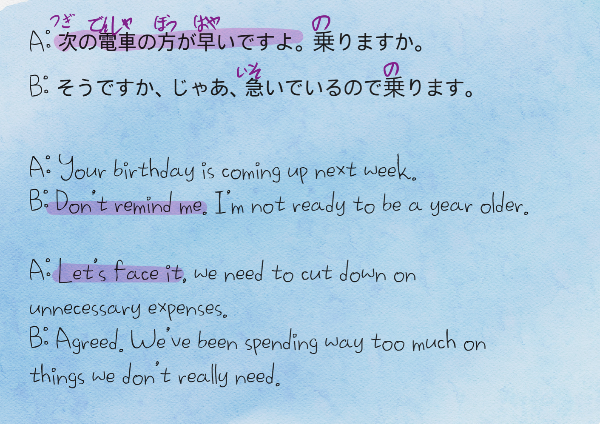 つぎ でんしゃ ほう はや の
A: 次の電車の方が早いですよ。乗りますか。
いそ の
B: そうですか、じゃあ、急いでいるので乗ります。
A: Your birthday is coming up next week.
B: Don't remind me. I'm not ready to be a year older.
A: Let's face it, we need to cut down on
unnecessary expenses.
B: Agreed. We've been spending way too much on
things we don't really need.